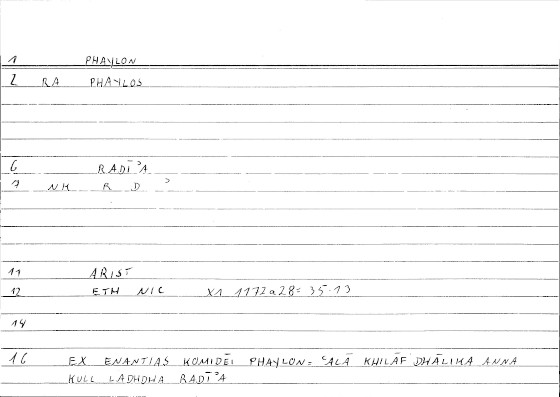 1 PHAYLON
2 RA PHAYLOS
6 RADĪʾA
7 NM R D ʾ
11 ARIST
12 ETH NIC X1 1172a28= 35.13
14
16 EX ENANTIAS KOMIDĒI PHAYLON= ʿALĀ KHILĀF DHĀLIKA ANNA
KULL LADHDHA RADĪʾA